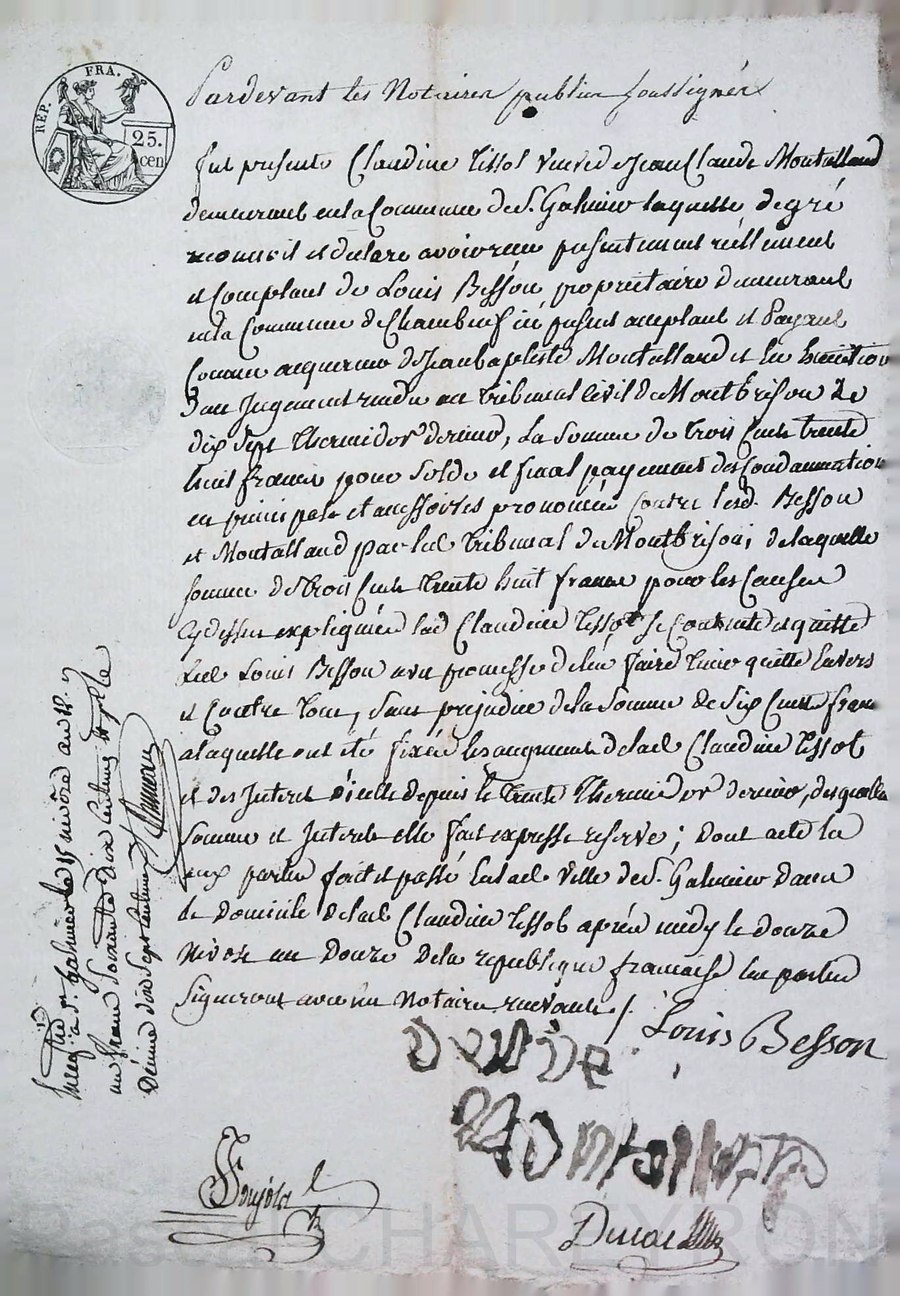 REP. FRA.
25.
cen
Pardevant les Notaires publics soussignés
fut presente Claudine Tissot veuve de Jean Claude Montalland
demeurant en la Commune de S. Galmier laquelle de gré
reconnoit et declare avoir recu presentement réellement
et Comptant de Louis Besson, proprietaire demeurant
en la Commune de Chambeuf ici present acceptant et Payant
Comme acquereur de Jean baptiste Montalland et En Execution
d'un Jugement rendu au tribunal Civil de Montbrison Le
dix sept Thermidor dernier, La Somme de trois Cents trente
huit francs pour Solde et final payement des Condamnations
en principale et accessoires prononcées Contre lesd. Besson
et Montalland par led tribunal de Montbrison, de laquelle
Somme de trois Cents trente huit francs pour les Causes
Cy dessus expliquées lad Claudine Tissot Se Contente et quitte
Led Louis Besson avec promesse de l'en faire tenir quitte Envers
et Contre tous, Sans prejudice de la Somme de Six Cents francs
a laquelle ont été fixées les augments de lad Claudine Tissot
et des Interets d'icelle depuis le trente Thermidor dernier, desquelles
Somme et Interets elle fait expresse reserve; dont acte la
aux parties fait et passé En lad ville de S. Galmier dans
le domicile de lad Claudine Tissot après midy le douze
Nivose an Douze de la republique francaise les parties
Signeront avec nous Notaire recevant /.
Louis Besson
veuve
Montalland
Duras
Enregtré à St. Galmier le 15 nivôse an 12. Reçu
un franc Soixante dix centimes et pr le
Décime dix Sept Centimes